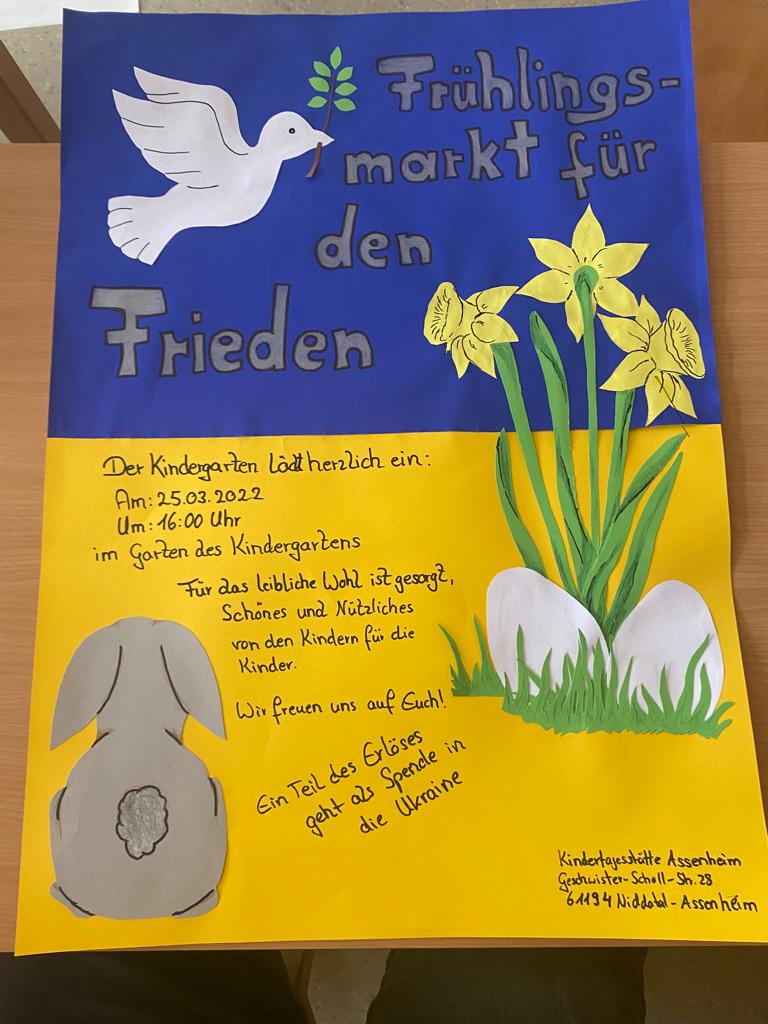 Frühlings-
markt für
den
Frieden
Der Kindergarten lädt herzlich ein:
Am: 25.03.2022
Um: 16:00 Uhr
im Garten des Kindergartens
Für das leibliche Wohl ist gesorgt,
Schönes und Nützliches
von den Kindern für die
Kinder.
Wir freuen uns auf Euch!
Ein Teil des Erlöses
geht als Spende in
die Ukraine
Kindertagesstätte Assenheim
Geschwister-Scholl-Str. 28
61194 Niddatal-Assenheim